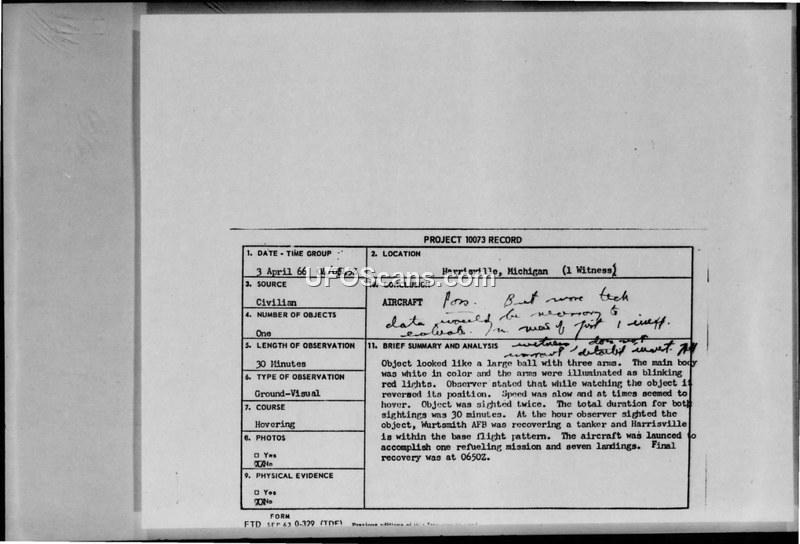 PROJECT 10073 RECORD
1. DATE - TIME GROUP
3 April 66
2. LOCATION
Harrisville, Michigan (1 Witness)
3. SOURCE
Civilian
10. CONCLUSION
AIRCRAFT Poss. But more tech
data would be necessary to
evaluate. In view of fact 1
witness does not
warrant detailed invest.
4. NUMBER OF OBJECTS
One
5. LENGTH OF OBSERVATION
30 Minutes
6. TYPE OF OBSERVATION
Ground-Visual
7. COURSE
Hovering
8. PHOTOS
□ Yes
XXNo
9. PHYSICAL EVIDENCE
□ Yes
XXNo
11. BRIEF SUMMARY AND ANALYSIS
Object looked like a large ball with three arms. The main body
was white in color and the arms were illuminated as blinking
red lights. Observer stated that while watching the object it
reversed its position. Speed was slow and at times seemed to
hover. Object was sighted twice. The total duration for both
sightings was 30 minutes. At the hour observer sighted the
object, Wurtsmith AFB was recovering a tanker and Harrisville
is within the base flight pattern. The aircraft was launced to
accomplish one refueling mission and seven landings. Final
recovery was at 0650Z.
FORM
FTD SEP 63 0-329 (TDE) Previous editions of this form
UFOScans.com